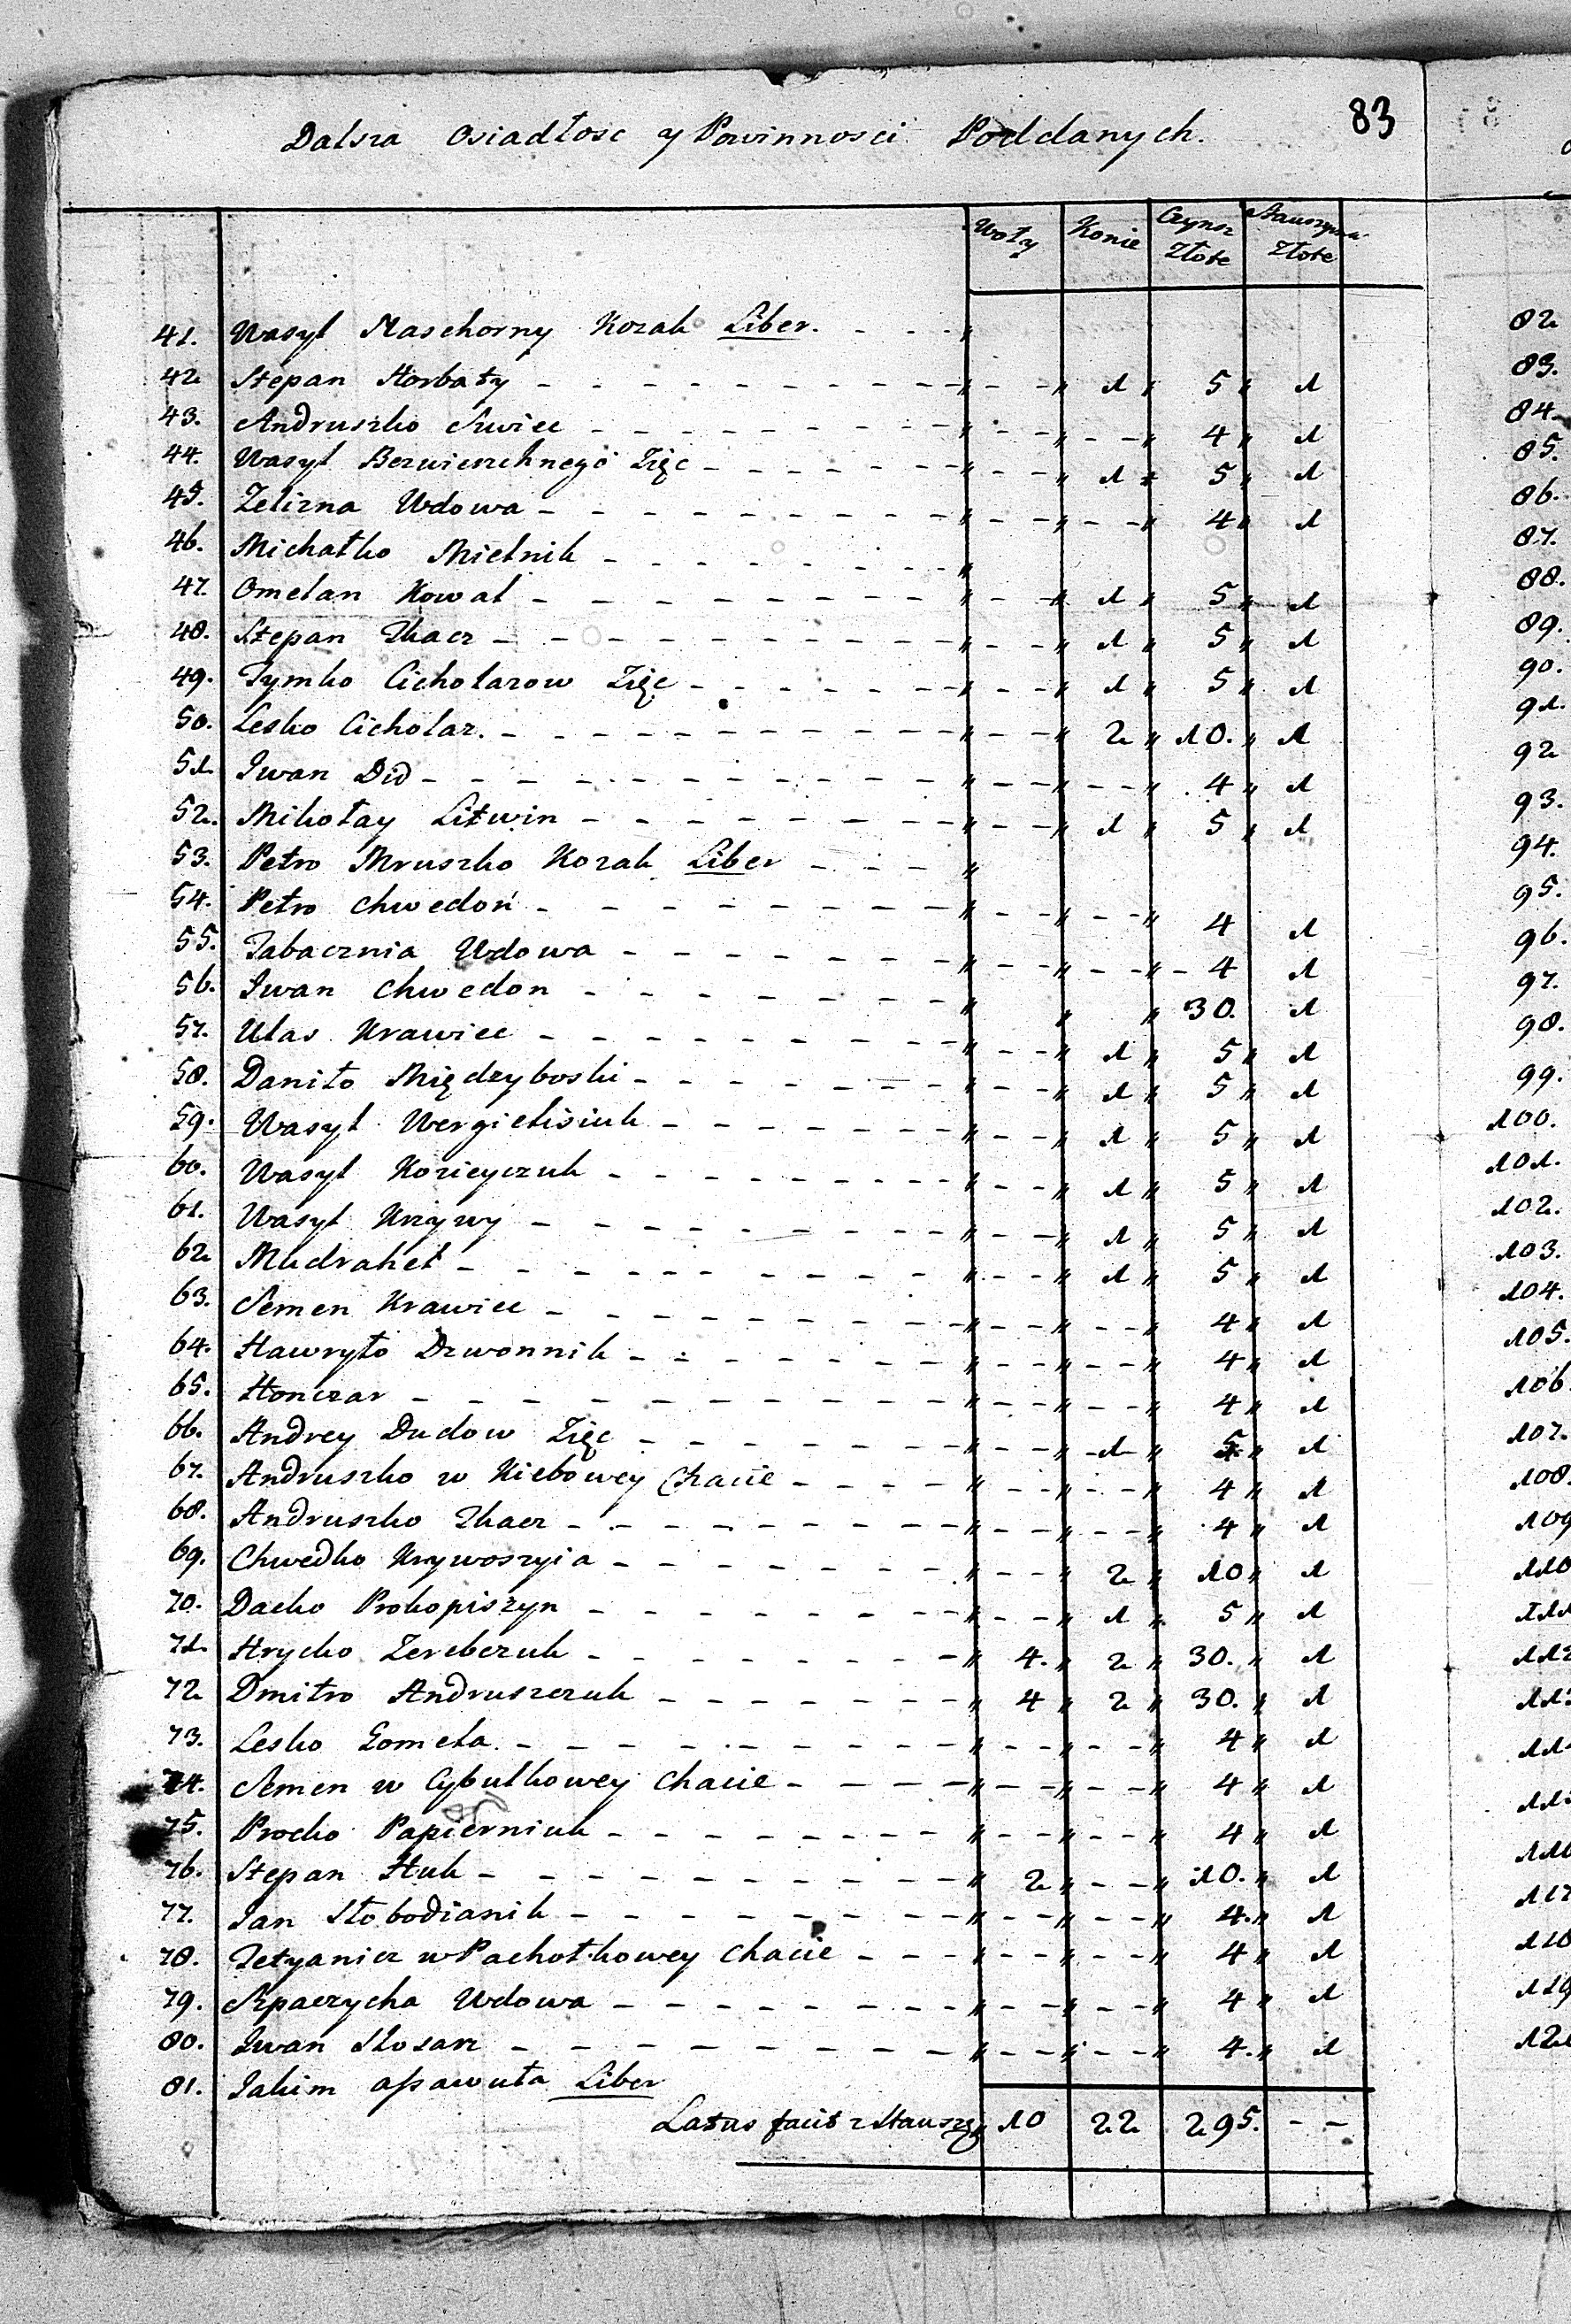 83
Dalsza Osiadłosc y Powinnosci Poddanych.
Woły Konie Czynsz Złote Złote
41. Wasyl Maschorny Kozak Liber.
42 Stepan Horbaty 1 5 1
43. Andruszko Swiec 4 1
44. Wasyl Bezwierzchnego Zięc 1 5 1
45. Zelizna Wdowa 4 1
46. Michałko Mielnik
47. Omelan Kowal 1 5 1
48. Stepan Tkacz 1 5 1
49. Tymko Cicholazow Zięc 1 5 1
50. Lesko Cicholaz. 2 10. 1
51. Iwan Did 4 1
52. Mikołay Litwin 1 5 1
53. Petro Mruszko Kozak Liber
54. Petro Chwedoń 4 1
55. Tabacznia Wdowa 4 1
56. Iwan Chwedon 30. 1
57. Ulas Krawiec 1 5 1
58. Daniło Międzyboski 1 5 1
59. Wasyl Wergielisiuk 1 5 1
60. Wasyl Kozieyczuk 1 5 1
61. Wasyl Krzywy 1 5 1
62 Mudrahel 1 5 1
63. Semen Krawiec 4 1
64. Hawryło Dzwonnik 4 1
65. Honczar 4 1
66. Andrey Dudow Zięc 1 5 1
67. Andruszko w Kiebowey Chacie 4 1
68. Andruszko Tkacz 4 1
69. Chwedko Krywoszyia 2 10 1
70. Dacko Prokopiszyn 1 5 1
71. Hrycko Zerebczuk 4. 2 30. 1
72 Dmitro Andruszczuk 4 2 30. 1
73. Lesko Gomela. 4 1
74. Semen w Cybulkowey Chacie 4 1
75. Procko Papierniuk 4 1
76. Stepan Huk 2 10. 1
77. Jan Słobodianik 4. 1
78. Tetyanicz w Pachołkowey Chacie 4 1
79. Szpaczycha Wdowa 4 1
80. Iwan Slosarz 4. 1
81. Jakim Assawuła Liber
Latus facit z 10 22 295.
82
83.
84.
85.
86.
87.
88.
89.
90.
91.
92
93.
94.
95.
96.
97.
98.
99.
100.
101.
102.
103.
104.
105.
106.
107.
108.
109
110